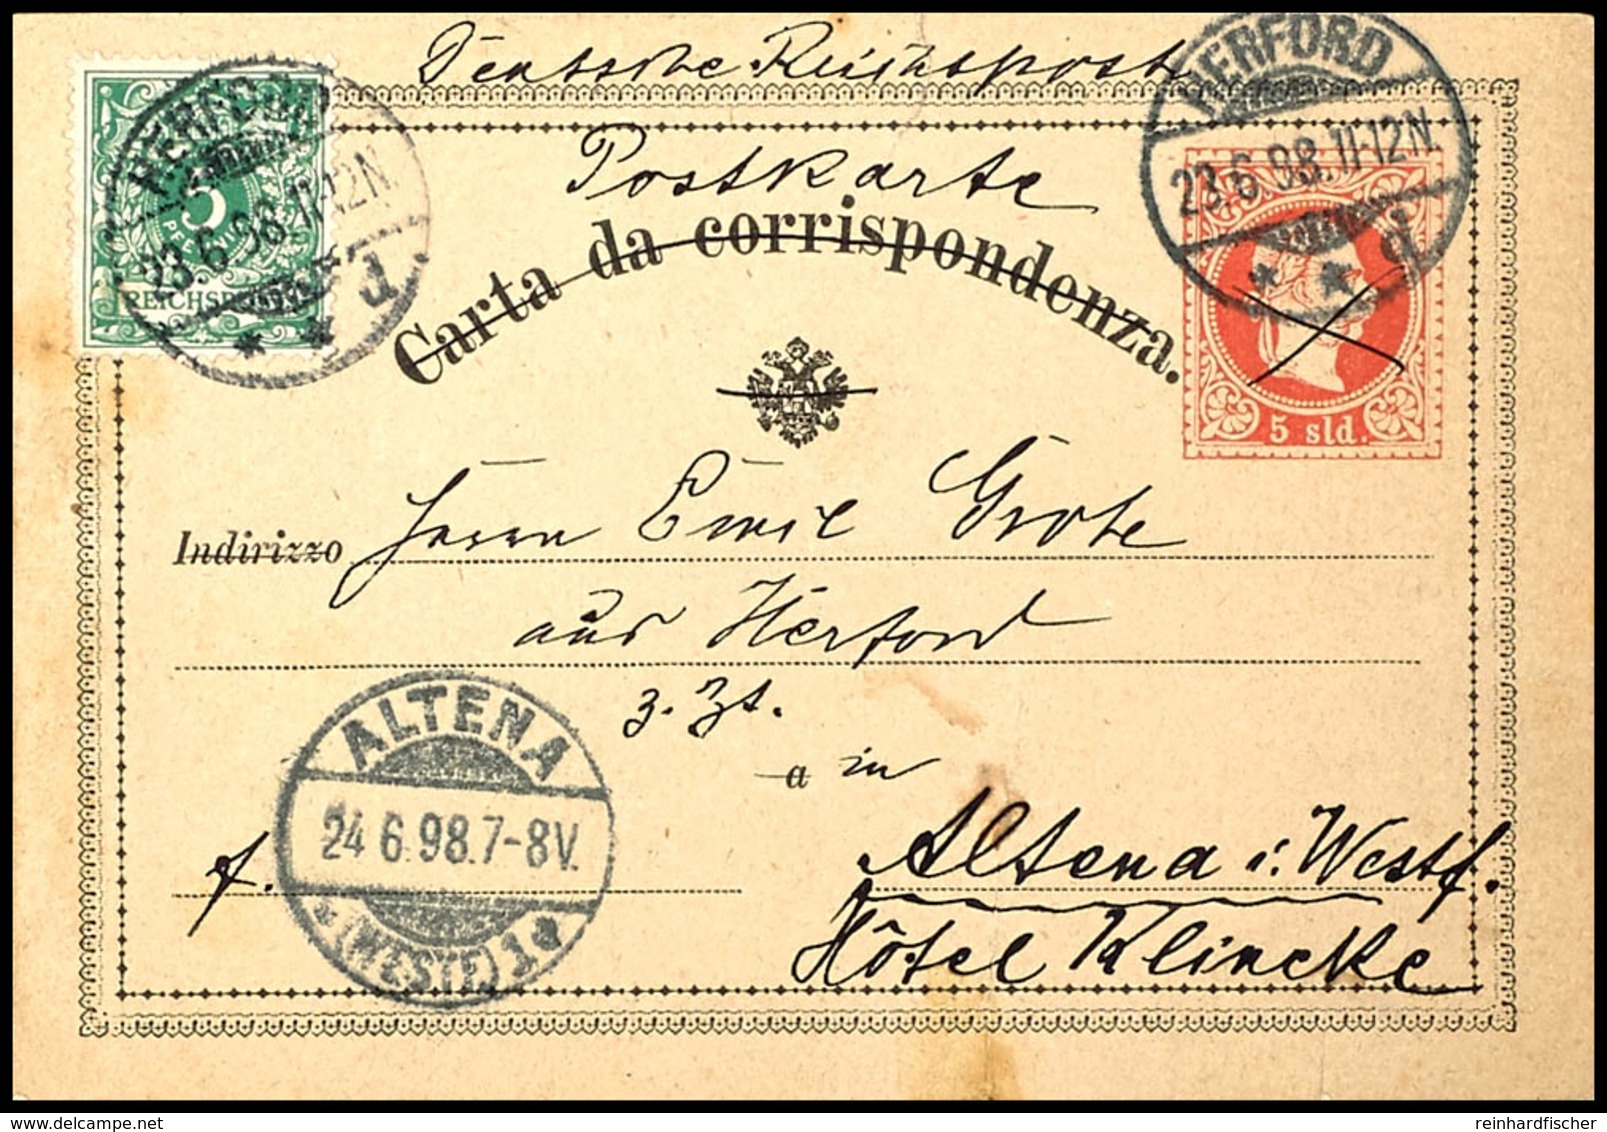 Deutsche Reichspost
Postkarte
Carta da corrispondenza.
HERFORD
23.6.98.11-12N.
* d *
5
PFENNIG
REICHSPOST
HERFORD
23.6.98.11-12N.
* * d
5 sld.
Indirizzo Herrn Emil Grote
aus Herford
z. Zt.
a in
Altena i. Westf.
Hôtel Klincke
f.
ALTENA
24 6.98.7-8V.
* (WESTF.) 1 *
reinhardfischer